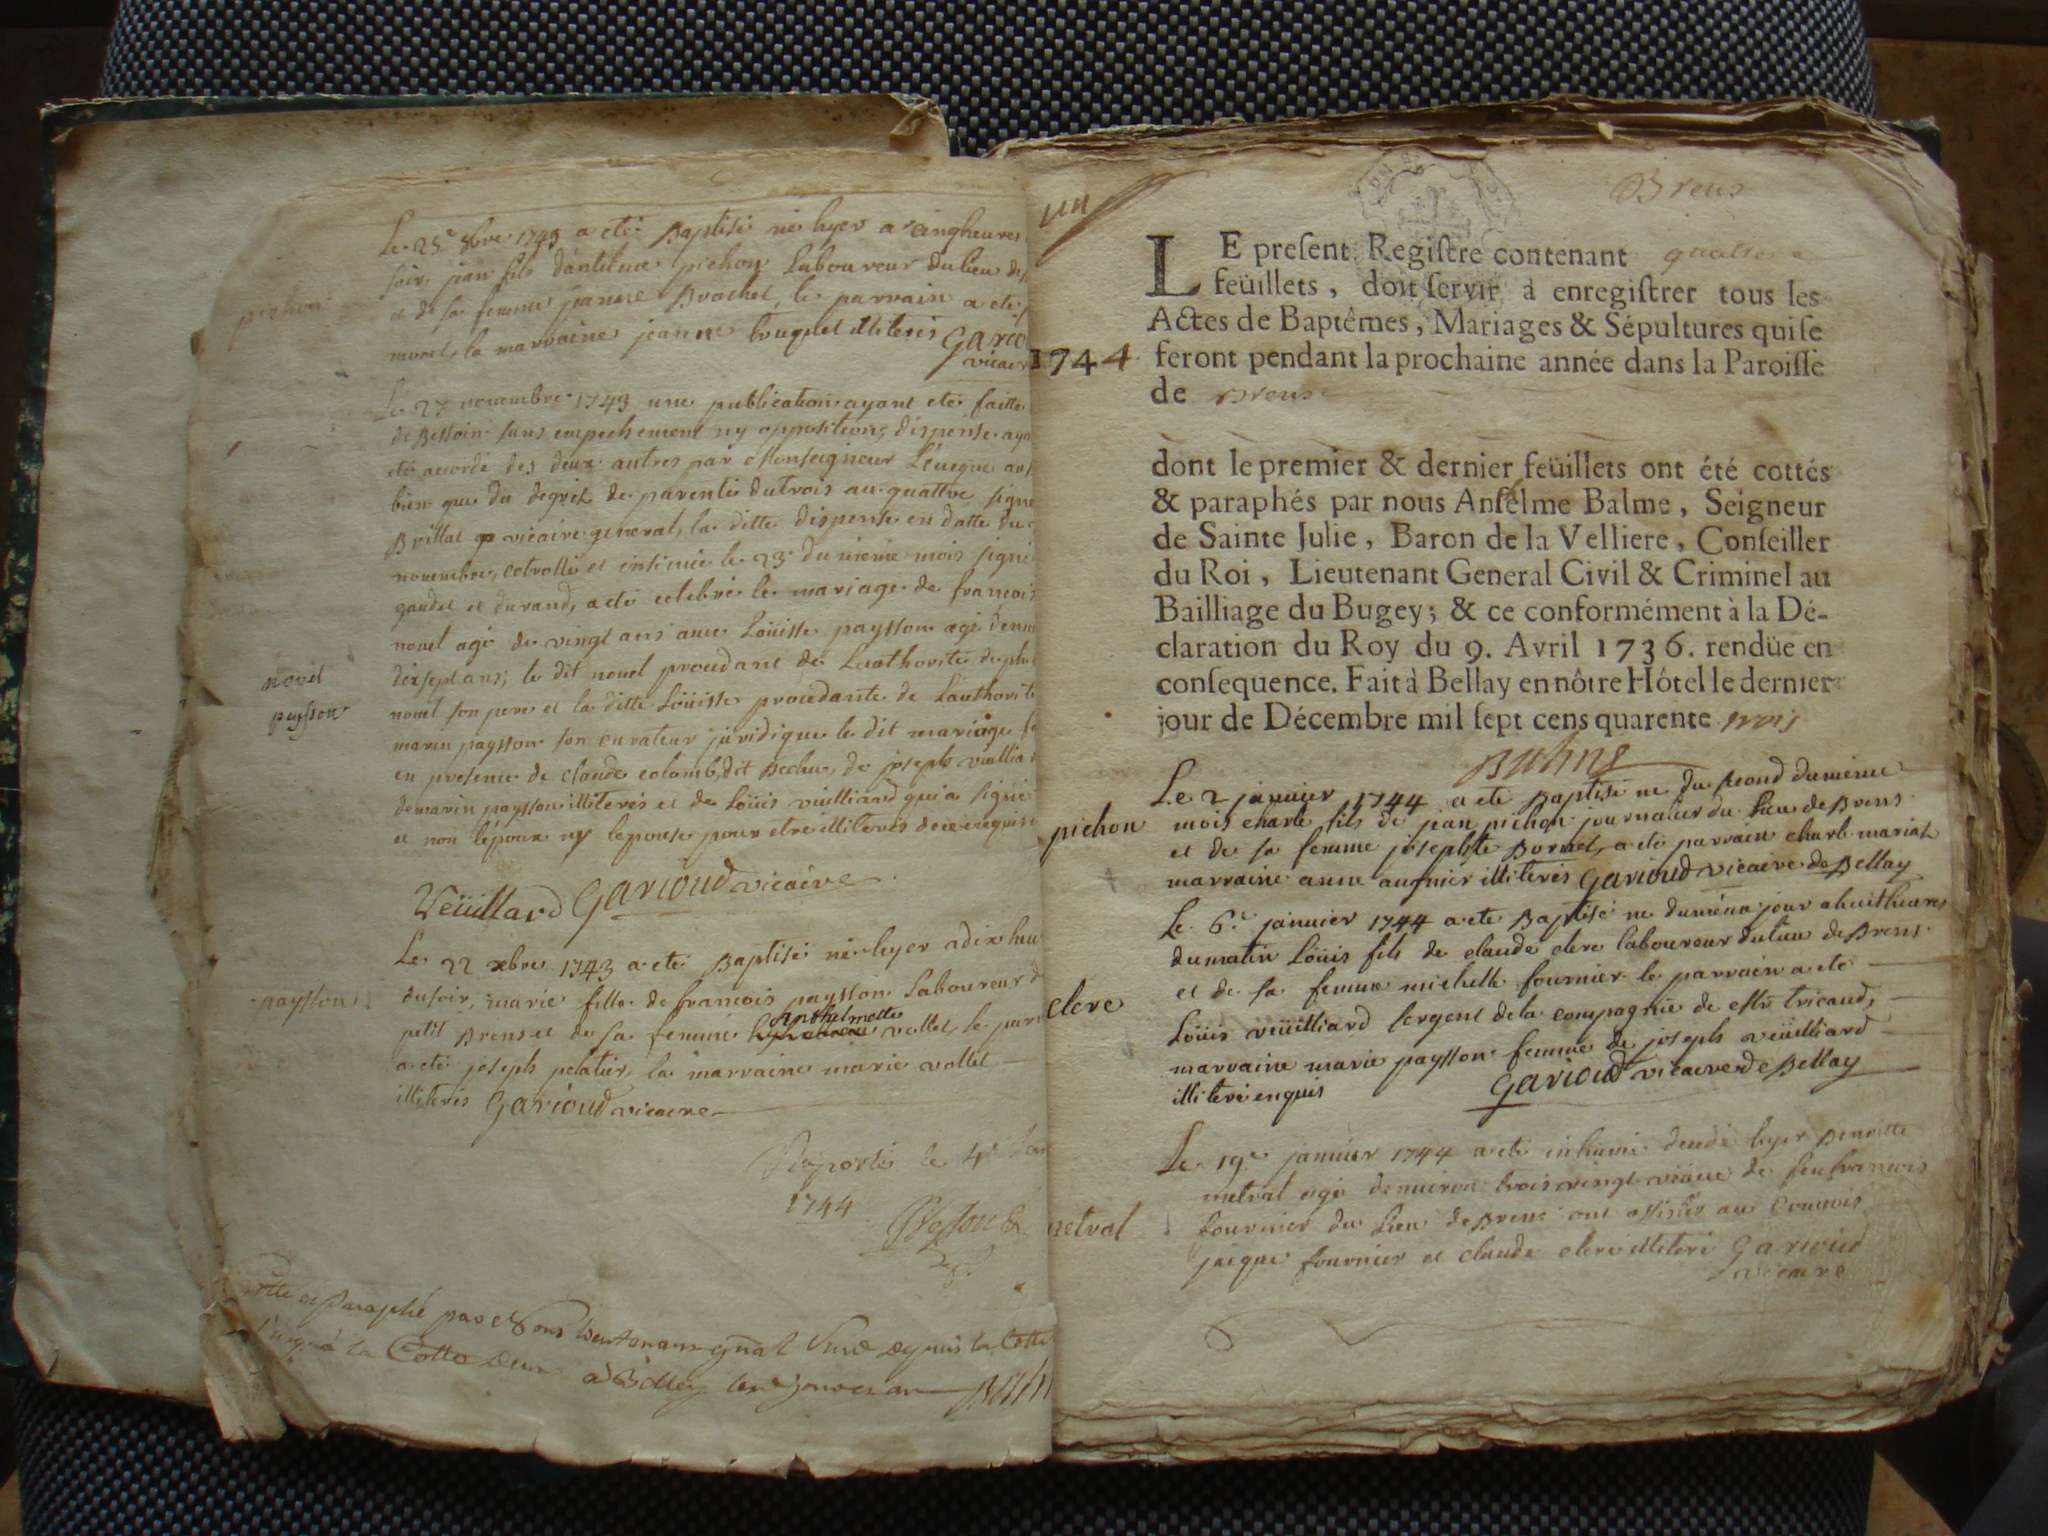 pichon
Le 25e 9bre 1743 a eté Baptisé né hyer a cinq heures
soir jean fils d'antelme pichon Laboureur du lieu de
et de sa femme janne Brochet, le parrain a eté
monet, la marraine jeanne bouquet illiterés Gario
vicair
Le 27 novembre 1743 une publication ayant eté faitte
de Besson sans empechement ny opposition, dispense aya
eté accordé des deux autres par Monseigneur L'éveque aus
bien que du degrez de parenté du trois au quattre signé
Brillat vicaire general, la ditte dispense en datte du
novembre, cotrollé et insinué le 23 du meme mois signé
gaudet et durand, a eté celebré le mariage de francois
novel
novel agé de vingt ans avec Loüisse paysson agé denvi
dixsept ans; le dit novel procedant de Lauthorité de
paysson
novel son pere et la ditte Loüisse procedante de Lauthorité
marin paysson son curateur juridique le dit mariage f
en presence de claude colomb, dit Bechu, de joseph vuillia
de marin paysson illiterés et de Loüis vuilliard qui a signé
et non l'époux ny lepouse pour etre illiterés de ce enquis
Veüillard Garioud vicaire
Le 22 xbre 1743 a eté Baptisé né hyer a dix heu
paysson
du soir, marie fille de francois paysson Laboureur d
anthelmette
petit Brens et de sa femme vollet le parr
a eté joseph pelatier, la marraine marie vollet
illiterés Garioud vicaire
Raporté le 4e Jan
1744
Cotté et Paraphé par Nous Lieutenant gnal depuis la Cotte
jusqu'à la Cotte deux à Belley
un
Brens
LE present Registre contenant quatre
feüillets, doit servir à enregistrer tous les
Actes de Baptêmes, Mariages & Sépultures qui se
1744 feront pendant la prochaine année dans la Paroisse
de Brens
dont le premier & dernier feüillets ont été cottés
& paraphés par nous Anselme Balme, Seigneur
de Sainte Julie, Baron de la Velliere, Conseiller
du Roi, Lieutenant General Civil & Criminel au
Bailliage du Bugey; & ce conformément à la Dé-
claration du Roy du 9. Avril 1736. rendüe en
consequence. Fait à Bellay en nôtre Hôtel le dernier
jour de Décembre mil sept cens quarente trois
Balme
Le 2 janvier 1744 a eté Baptisé né du second du méme
pichon
mois charle fils de jean pichon journalier du Lieu de Brens
et de sa femme josephte Bornet, a eté parrain charle mariat
marraine anne augnier illiterés Garioud vicaire de Bellay
Le 6e janvier 1744 a eté Baptisé né du méme jour a huit heures
du matin Loüis fils de claude clere laboureur du lieu de Brens
et de sa femme michelle fournier le parrain a eté
clere
Loüis veüilliard sergent de la compagnie de Mr tricaud,
marraine marie paysson femme de joseph veüilliard
illiteré enquis Garioud vicaire de Bellay
Le 19e janvier 1744 a eté inhumé decedé hyer Benoitte
metral agé denviron trois vingt veuve de feu francois
metral
fournier du Lieu de Brens ont assistés au Convois
jacque fournier et claude clere illiteré Garioud
vicaire